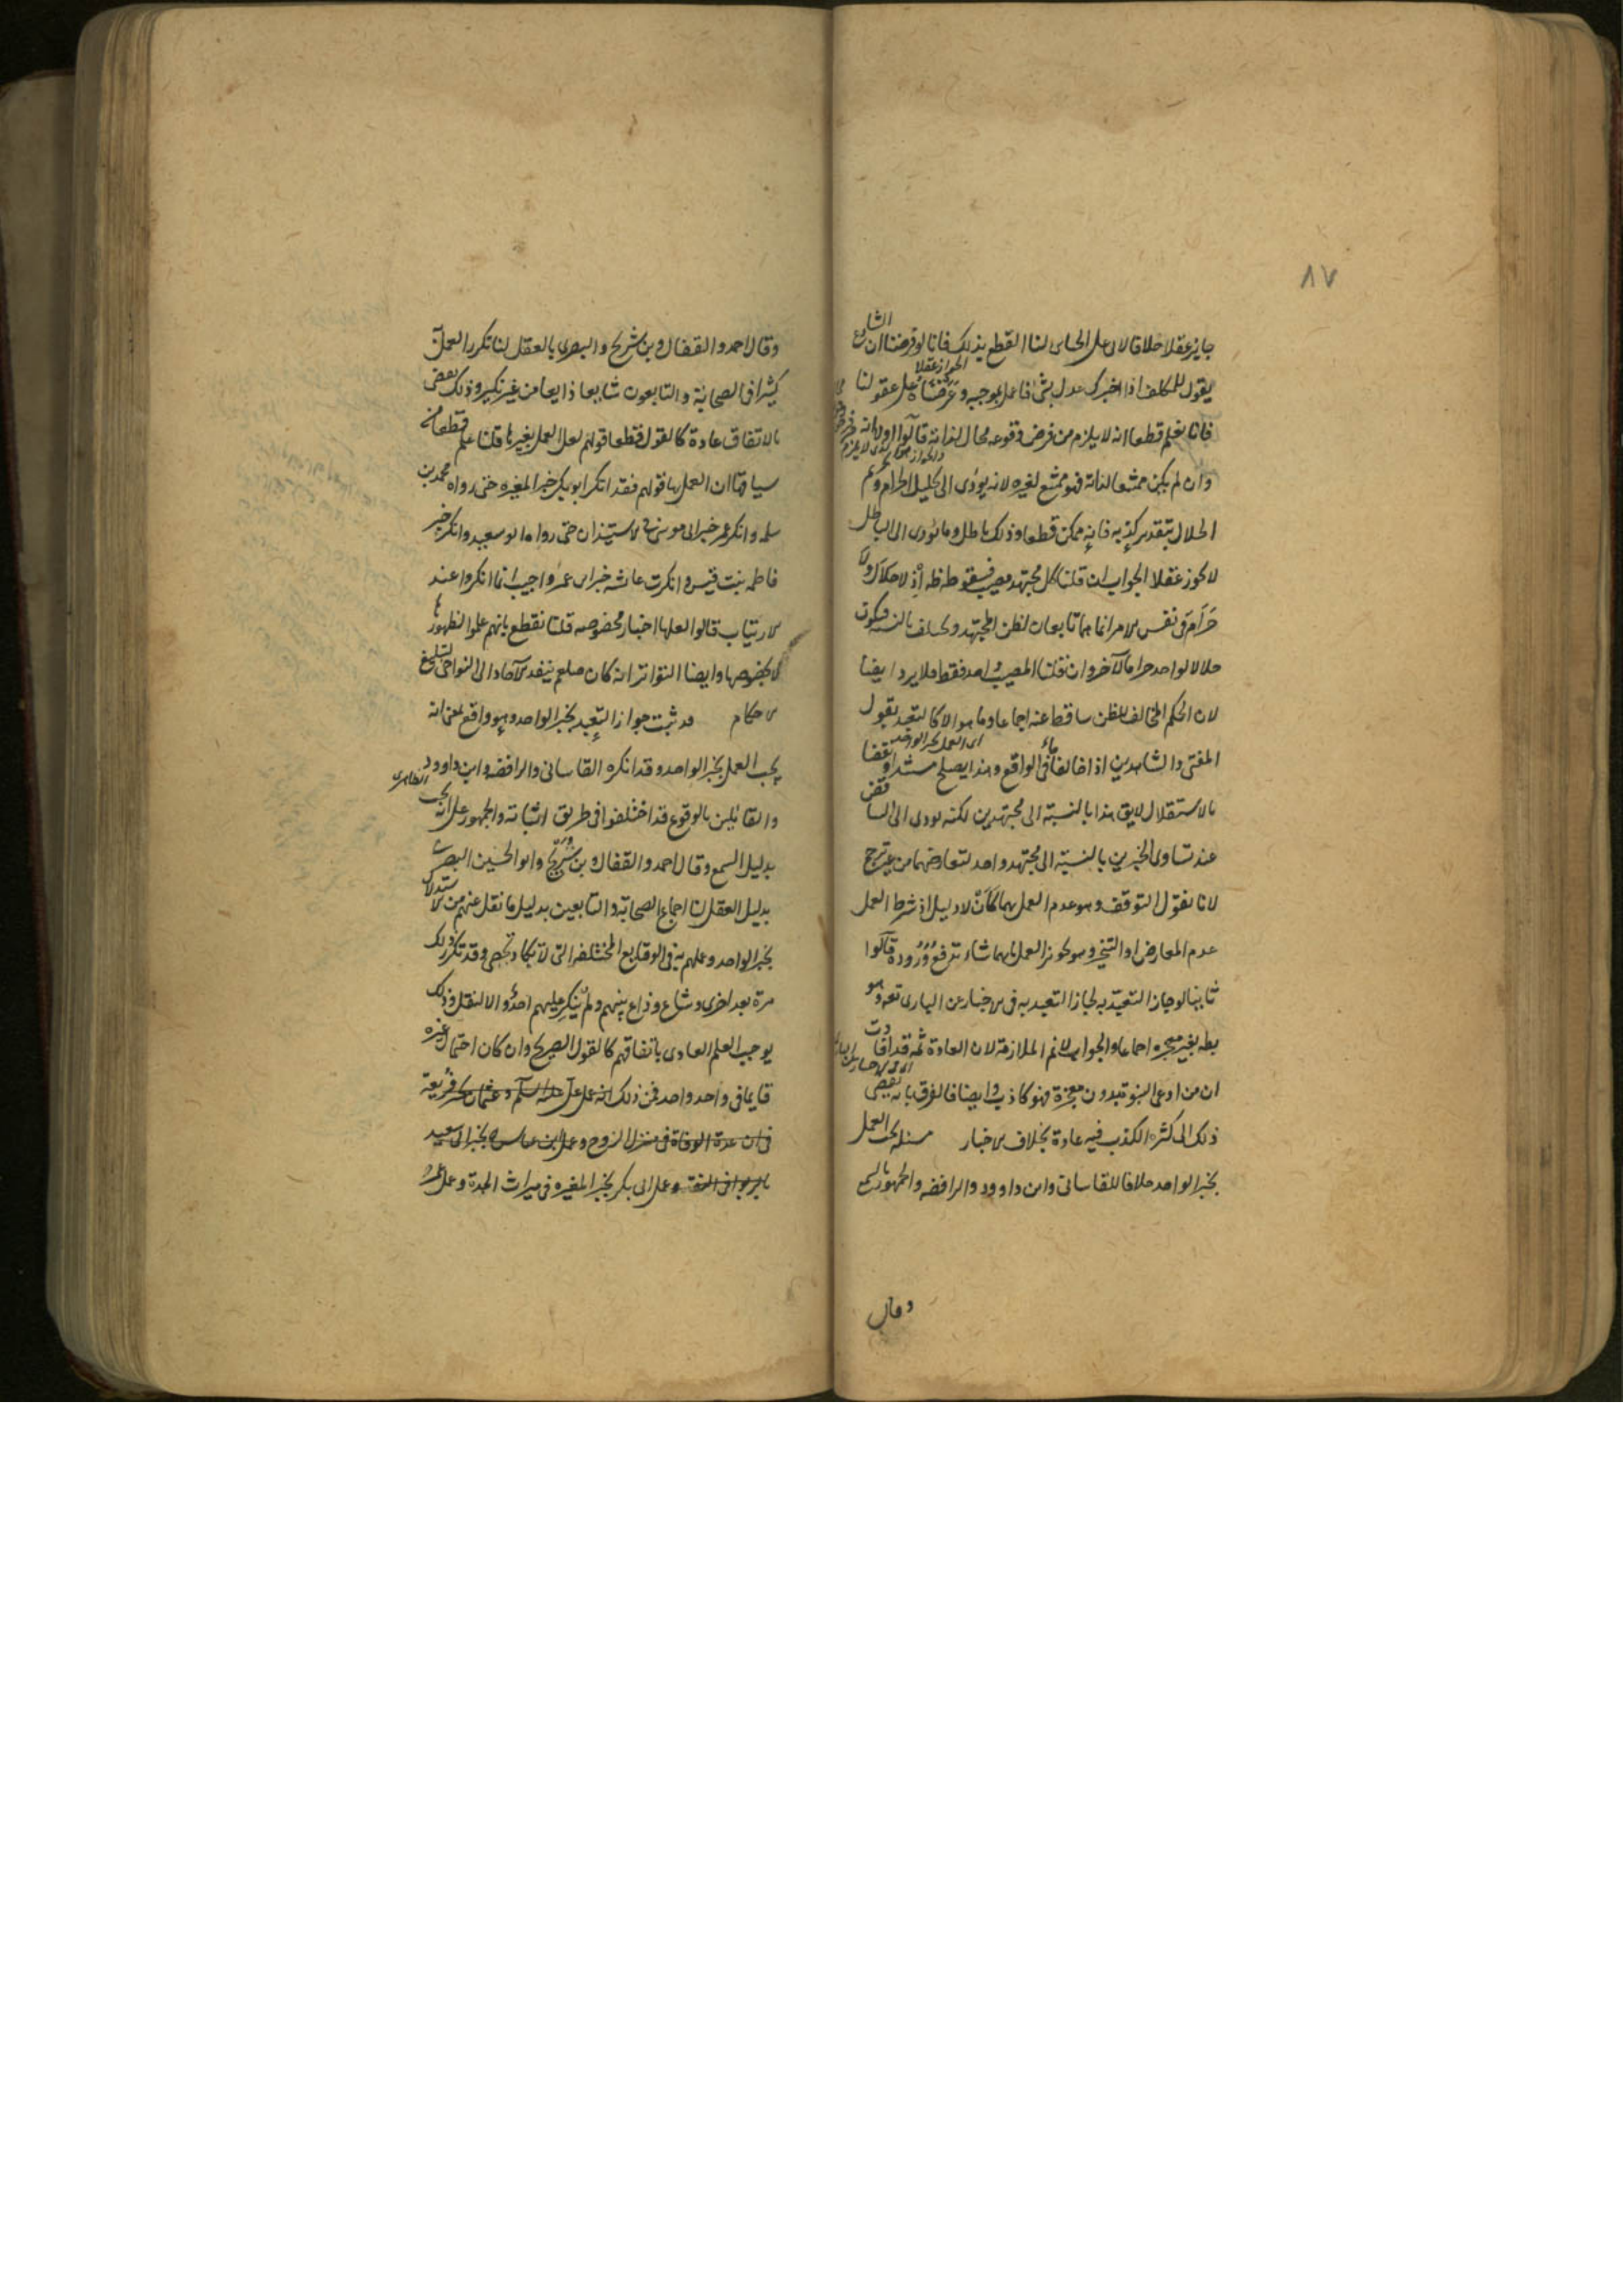 ٨٧
جايز عقلا خلافا لابى على الجباى لنا القطع بذلك فانا لو فرضنا ان الشارع
يقول للمكلف اذا اخبرك عدل بشئ فاعمل بموجبه وعرضناه على عقولنا
الجواز عقلا
فانا نعلم قطعا انه لا يلزم من فرض وقوعه محال لذاته قالوا اولا انه
وان لم يكن ممتنعا لذاته فهو ممتنع لغيره لانه يؤدى الى تحليل الحرام وتحريم
الحلال بتقدير كذبه فانه ممكن قطعا وذلك باطل وما يؤدى الى الباطل
لا يجوز عقلا الجواب ان قلنا كل مجتهد مصيب فسقوطه ظه اذ لا حلال ولا
حرام فى نفس الامر انما هما تابعان لظن المجتهد ويختلف بالنسبة فيكون
حلالا لواحد حراما لآخر وان قلنا المصيب واحد فقط فلا يرد ايضا
لان الحكم المخالف للظن ساقط عنه اجماعا وما هو الا كالتعبد بقول
المفتى والشاهدين اذا خالفا ما فى الواقع وهذا يصلح مستندا ونقضا
اى العمل بخبر الواحد
بالاستقلال لايق هذا بالنسبة الى مجتهدين لكنه يودى الى التناقض
عند تساوى الخبرين بالنسبة الى مجتهد واحد لتعارضهما من غير ترجيح
لانا نقول التوقف وهو عدم العمل بهما كان لا دليل اذ شرط العمل
عدم المعارض او التخيير وهو تجويز العمل بايهما شاء ترفع وروده قالوا
ثانيا لو جاز التعبد به لجاز التعبد به فى الاخبار عن البارى تعه وهو
بطه بغير معجزه اجماعا والجواب لا نم الملازمة لان العادة ثمه قد افادت
ان من ادعى النبوة بدون معجزة فهو كاذب وايضا فالفرق بانه يفضى
ذلك الى كثره الكذب فيه عادة بخلاف الاخبار مسئله يجب العمل
بخبر الواحد خلافا للقاسانى وابن داوود والرافضه والجمهور بالسمع
وقال
وقال احمد والقفال وبن شريح والبصرى بالعقل لنا تكرر العمل
كثيرا فى الصحابة والتابعون شايعا ذايعا من غير نكير وذلك يقضى
بالاتفاق عادة كالقول قطعا قولهم لعل العمل بغيرها قلنا علم قطعا من
سياقها ان العمل بها قولهم فقد انكر ابو بكر خبر المغيره حتى رواه محمد بن
سلمه وانكر عمر خبر ابى موسى فى الاستيذان حتى رواه ابو سعيد وانكر خبر
فاطمه بنت قيس وانكرت عايشه خبر ابن عمر واجيب انما انكروا عند
الارتياب قالوا لعلها اخبار مخصوصه قلنا نقطع بانهم عملوا لظهورها
لا بخصوصها وايضا التواتر انه كان صلعم ينفد الآحاد الى النواحى لتبليغ
الاحكام قد ثبت جواز التعبد بخبر الواحد وهو واقع لمعنى انه
يجب العمل بخبر الواحد وقد انكره القاسانى والرافضه وابن داوود الظاهرى
والقايلين بالوقوع قد اختلفوا فى طريق اثباته والجمهور على انه يجب
بدليل السمع وقال احمد والقفال وبن شريح وابو الحسين البصرى
بدليل العقل لنا اجماع الصحابة والتابعين بدليل ما نقل عنهم من الاستدلال
بخبر الواحد وعملهم به فى الوقايع المختلفه التى لا تكاد تحصى وقد تكرر ذلك
مرة بعد اخرى وشاع وذاع بينهم ولم ينكر عليهم احد والا لنقل وذلك
يوجب العلم العادى باتفاقهم كالقول الصريح وان كان احتمال غيره
قايما فى واحد واحد فمن ذلك انه عمل على عليه السلم وعثمان بخبر فريعة
فى ان عدة الوفاة فى منزل الزوج وعمل ابن عباس بخبر ابى سعيد
بالربوا فى النقد وعمل ابى بكر بخبر المغيره فى ميراث الجدة وعمل عمر